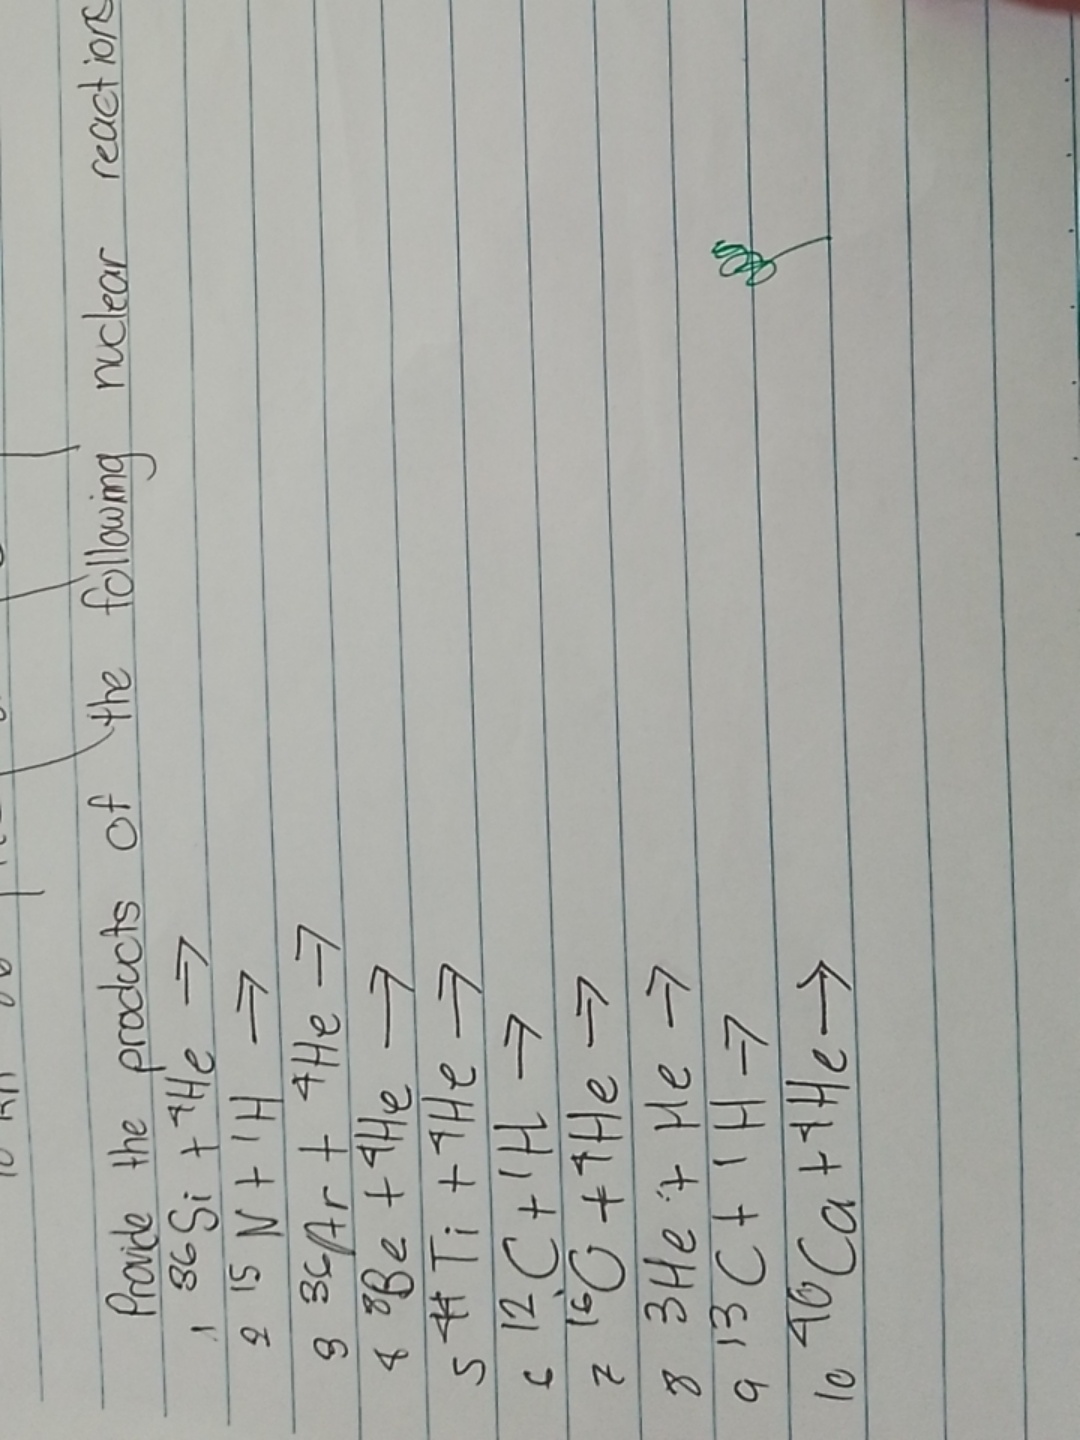 Provide the products of the following nuclear reactions
1 36Si + 4He →
2 15 N + 1H →
3 36Ar + 4He →
4 8Be + 4He →
5 44 Ti + 4He →
6 12C + 1H →
7 16O + 4He →
8 3He + He →
9 13C + 1H →
10 40Ca + 4He →